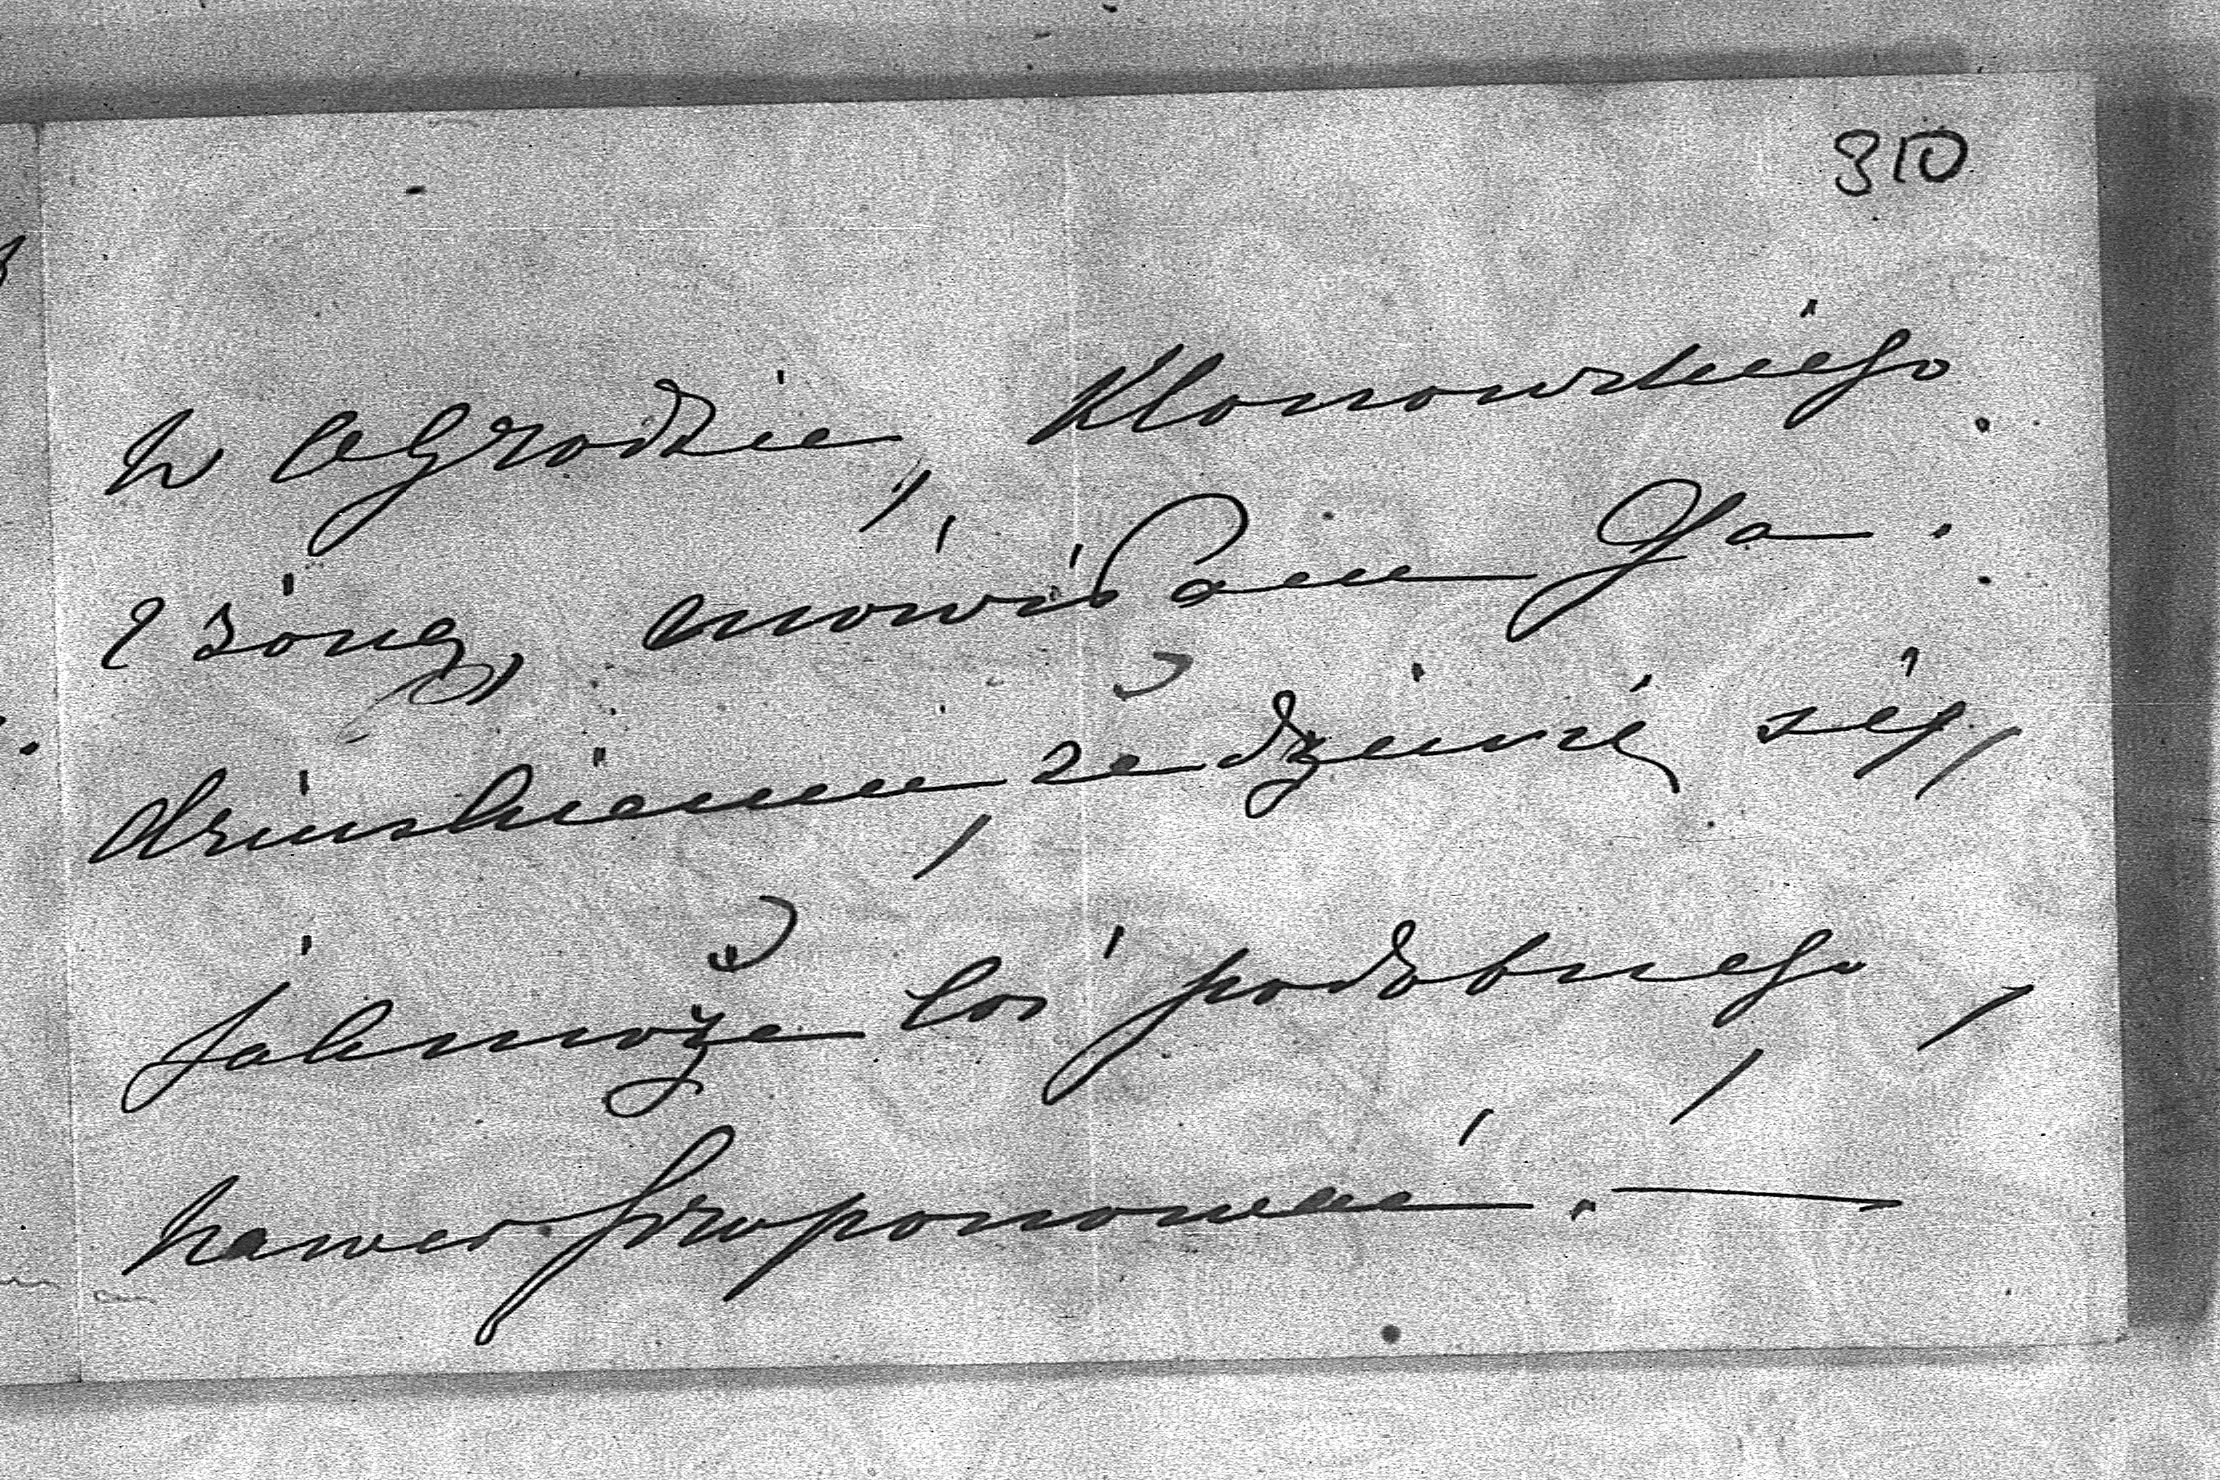 310
w Ogrodzie, Klonowskiego
z żoną, mówił Panu Ja-
dzińskiemu, że dziwię się,
jak może coś podobnego,
nawet proponować. —